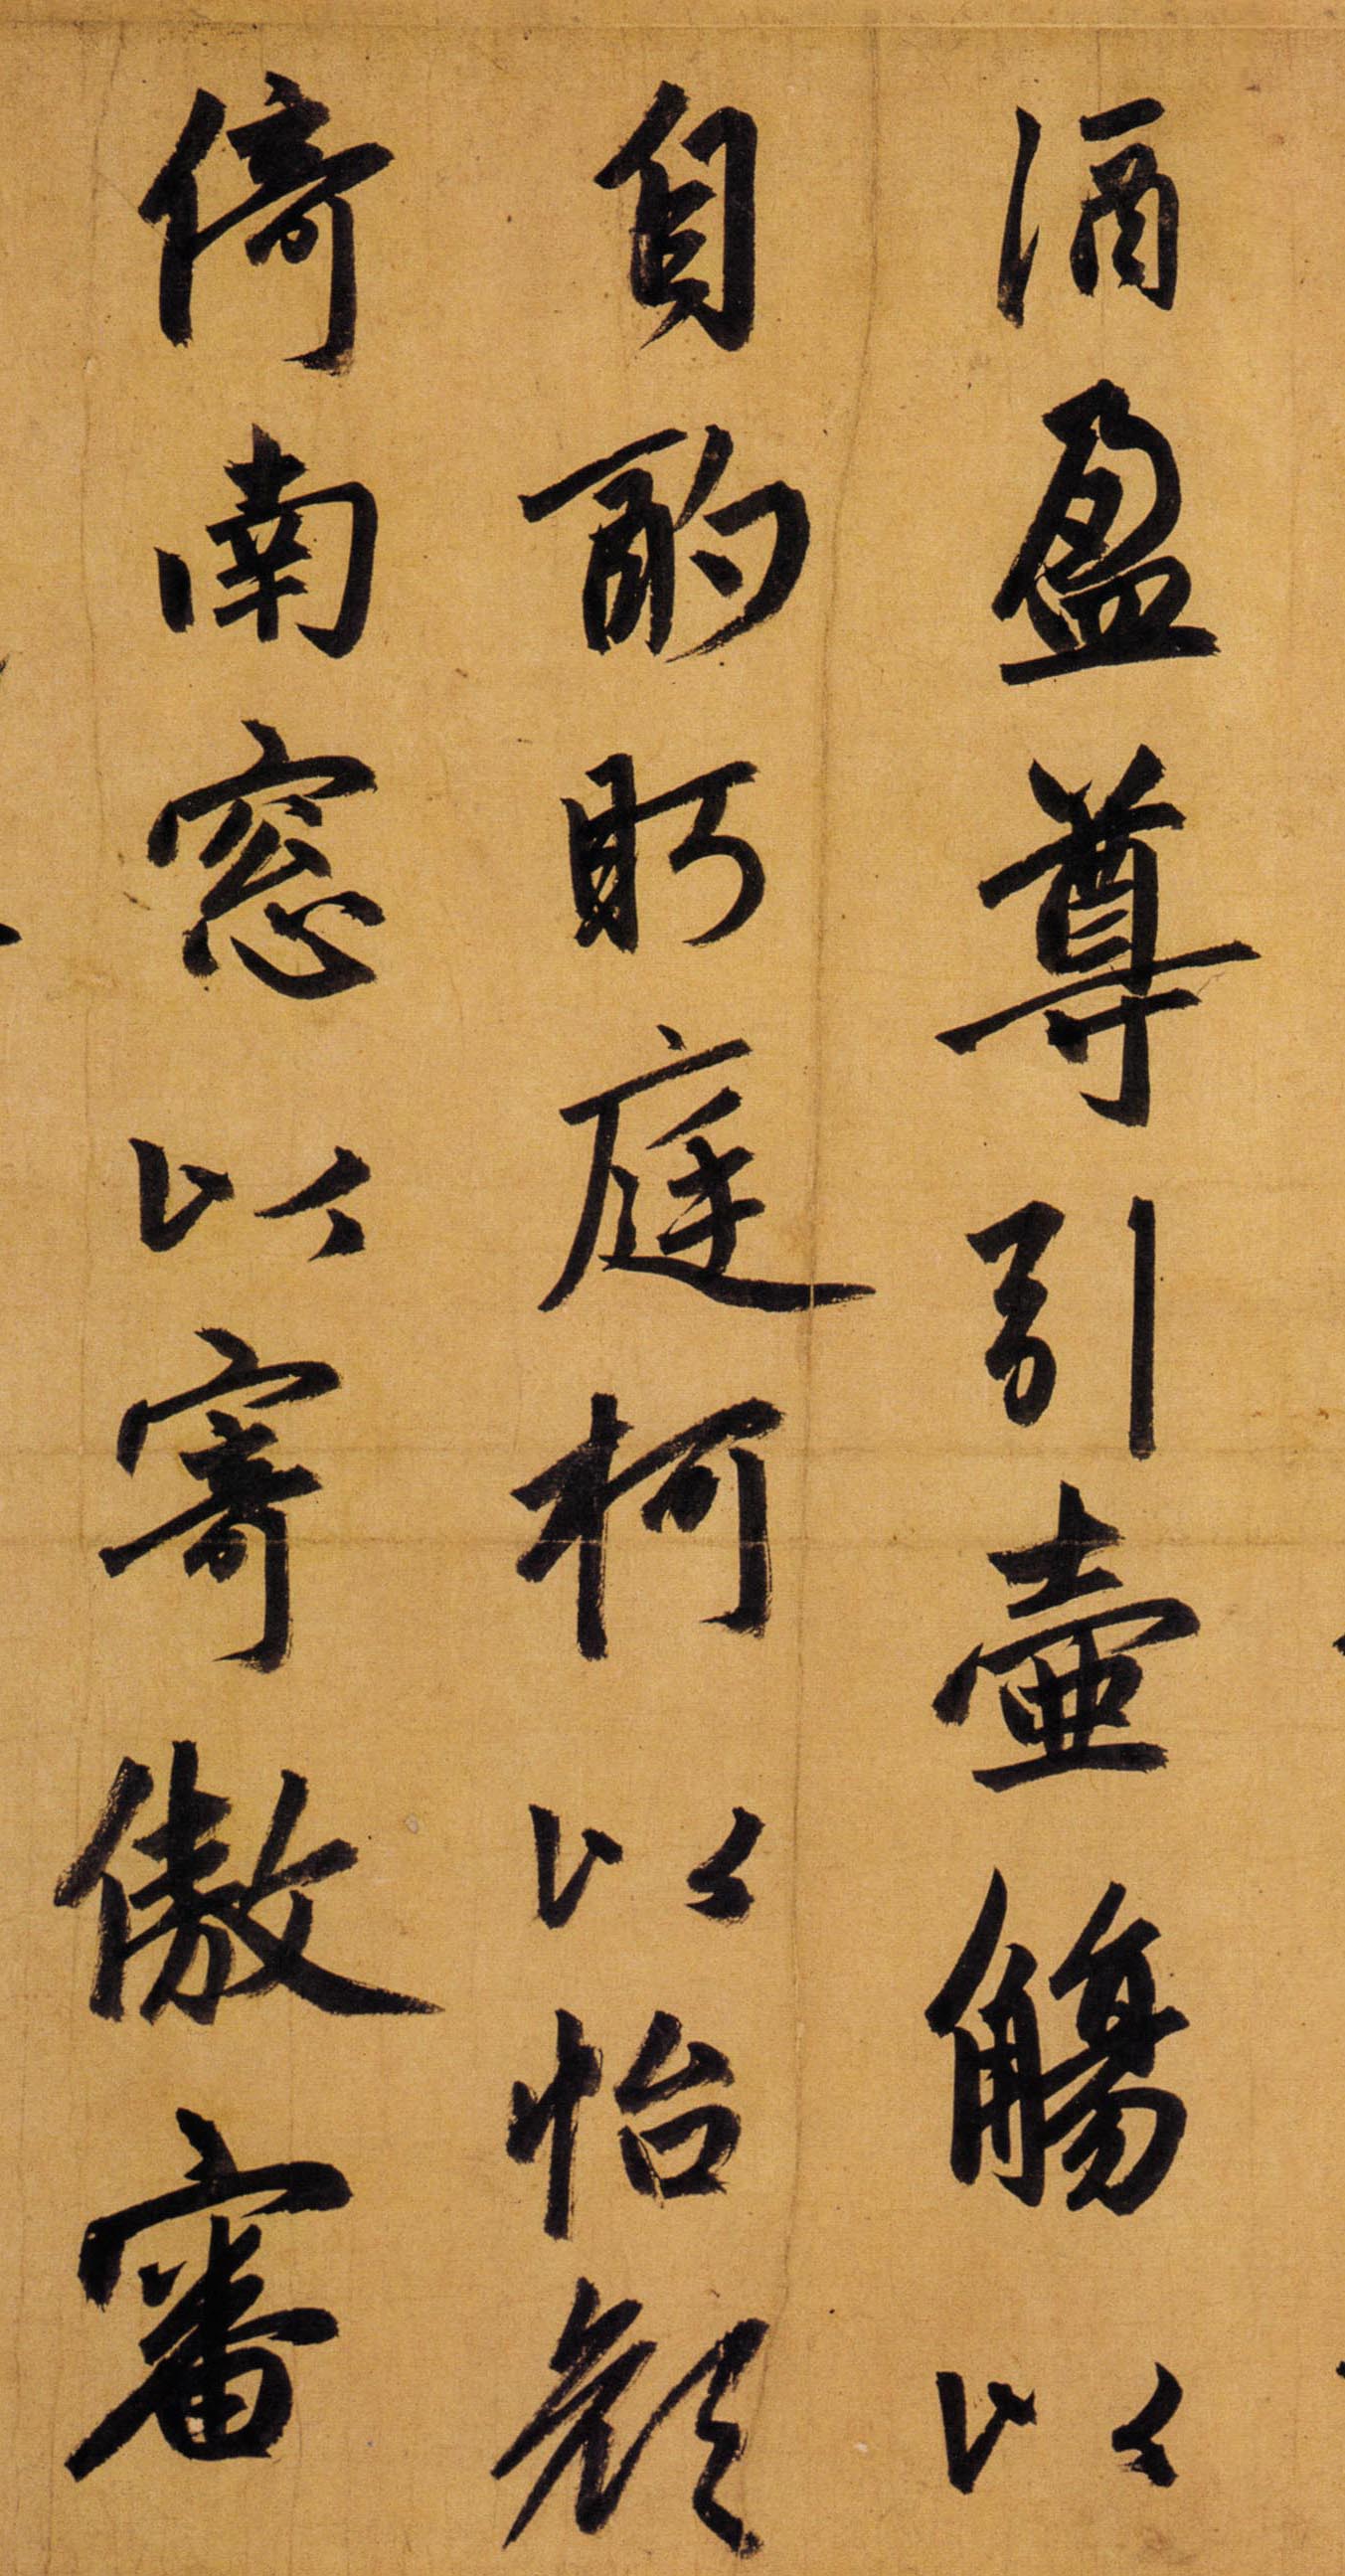 酒盈尊引壺觴以
自酌眄庭柯以怡顔
倚南窓以寄傲審